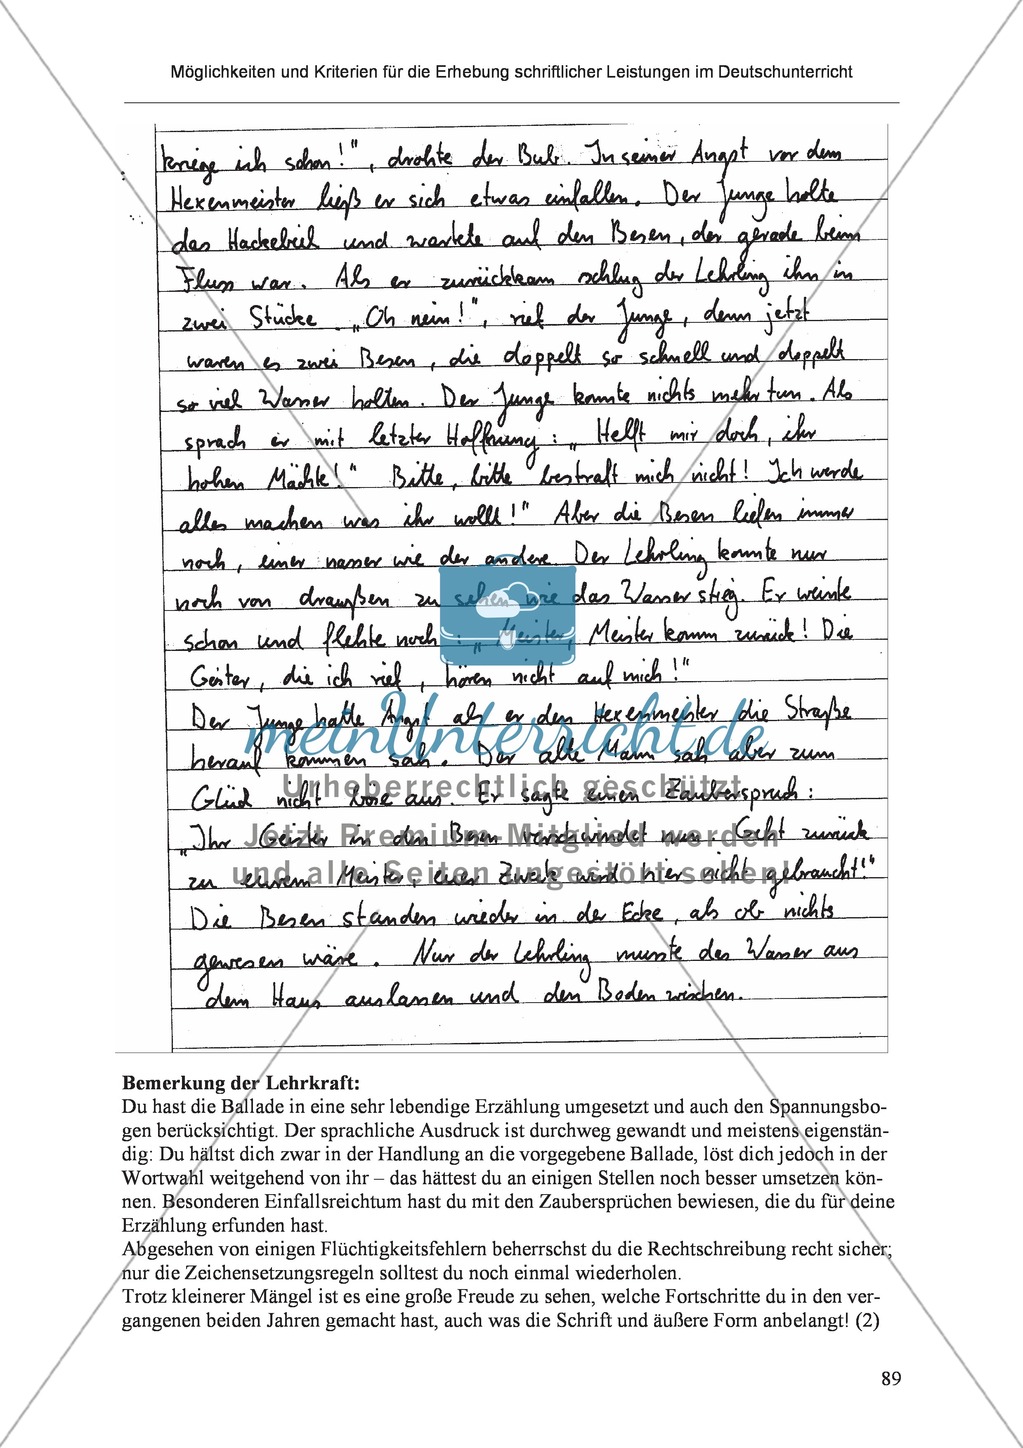 Möglichkeiten und Kriterien für die Erhebung schriftlicher Leistungen im Deutschunterricht
kriege ich schon!", drohte der Bub. In seiner Angst vor dem
Hexenmeister ließ er sich etwas einfallen. Der Junge holte
das Hackebeil und wartete auf den Besen, der gerade beim
Fluss war. Als er zurückkam schlug der Lehrling ihn in
zwei Stücke. „Oh nein!", rief der Junge, denn jetzt
waren es zwei Besen, die doppelt so schnell und doppelt
so viel Wasser holten. Der Junge konnte nichts mehr tun. Als
sprach er mit letzter Hoffnung: „Helft mir doch, ihr
hohen Mächte!" Bitte, bitte bestraft mich nicht! Ich werde
alles machen was ihr wollt!" Aber die Besen liefen immer
noch, einer nasser wie der andere. Der Lehrling konnte nur
noch von draußen zu sehen wie das Wasser stieg. Er weinte
schon und flehte noch: „Meister, Meister komm zurück! Die
Geister, die ich rief, hören nicht auf mich!"
Der Junge hatte Angst als er den Hexenmeister die Straße
meinUnterricht.de
herauf kommen sah. Der alte Mann sah aber zum
Urheberrechtlich geschützt
Glück nicht böse aus. Er sagte einen Zauberspruch:
„Ihr Geister in den Besen verschwindet nun. Geht zurück
Jetzt Premium-Mitglied werden
zu eurem Meister, euer Zweck wird hier nicht gebraucht!"
und alle Seiten ungestört sehen!
Die Besen standen wieder in der Ecke, als ob nichts
gewesen wäre. Nur der Lehrling musste das Wasser aus
dem Haus auslassen und den Boden wischen.
Bemerkung der Lehrkraft:
Du hast die Ballade in eine sehr lebendige Erzählung umgesetzt und auch den Spannungsbo-
gen berücksichtigt. Der sprachliche Ausdruck ist durchweg gewandt und meistens eigenstän-
dig: Du hältst dich zwar in der Handlung an die vorgegebene Ballade, löst dich jedoch in der
Wortwahl weitgehend von ihr – das hättest du an einigen Stellen noch besser umsetzen kön-
nen. Besonderen Einfallsreichtum hast du mit den Zaubersprüchen bewiesen, die du für deine
Erzählung erfunden hast.
Abgesehen von einigen Flüchtigkeitsfehlern beherrschst du die Rechtschreibung recht sicher;
nur die Zeichensetzungsregeln solltest du noch einmal wiederholen.
Trotz kleinerer Mängel ist es eine große Freude zu sehen, welche Fortschritte du in den ver-
gangenen beiden Jahren gemacht hast, auch was die Schrift und äußere Form anbelangt! (2)
89